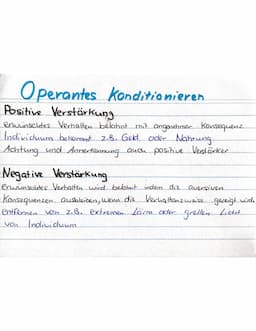 Operantes Konditionieren
Positive Verstärkung
erwünschtes Verhalten belohnt mit angenehmer Konsequenz
Individuum bekommt z.B. Geld oder Nahrung
Achtung und Annerkennung auch positive Verstärker
Negative Verstärkung
Erwünschtes Verhalten wird belohnt indem die aversiven
Konsequenzen ausbleiben, wenn die Verhaltensweise gezeigt wird
entfernen von z.B. extremen Lärm oder grellen Licht
von Individuum